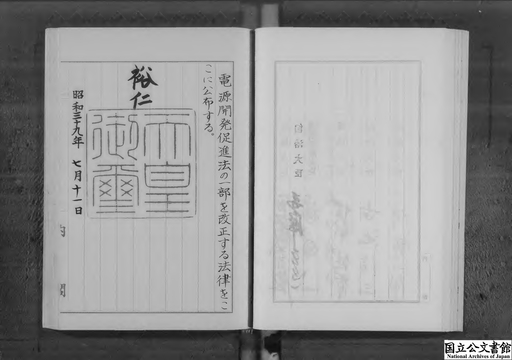 電源開発促進法の一部を改正する法律をこ
こに公布する。
裕仁
天皇
御璽
昭和三十九年 七月十一日
内 閣
自治大臣
国立公文書館
National Archives of Japan